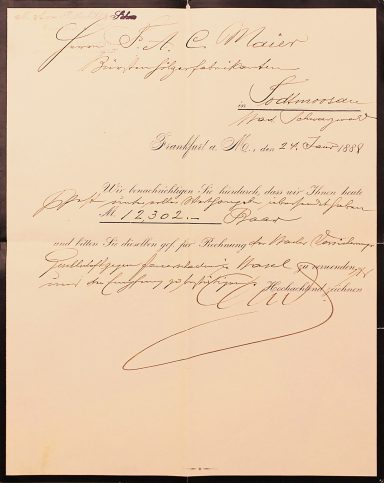 Herren P. A. C. Maier
Bürstenhölzerfabrikanten
in Todtmoosau
bad. Schwarzwald
Frankfurt a. M., den 24. Janr 1888
Wir benachrichtigen Sie hierdurch, dass wir Ihnen heute
Post unter voller Werthangabe übersandt haben
M. 12,302.— Baar
und bitten Sie dieselben gef. für Rechnung der Basler Versicherungs
Gesellschaft gegen Feuerschaden in Basel zu verwenden
und den Empfang zu bestätigen. Hochachtend zeichnen